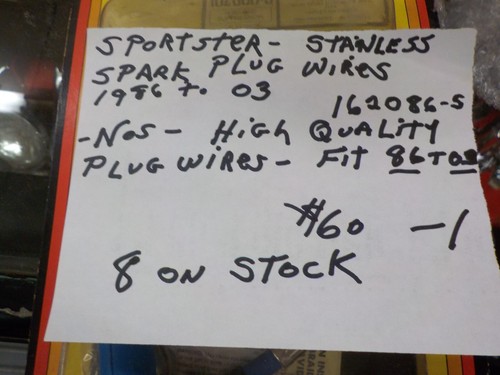 SPORTSTER - STAINLESS
SPARK PLUG WIRES
1986 TO 03
161086-S
- NOS - HIGH QUALITY
PLUG WIRES - FIT 86 TO 03
$60 - 1
8 ON STOCK